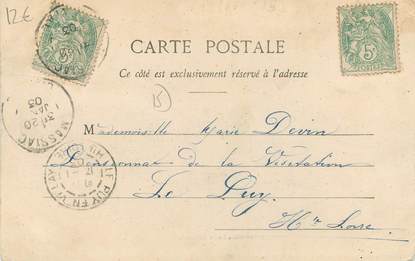 12€
CARTE POSTALE
Ce côté est exclusivement réservé à l'adresse
B
Mademoiselle Marie Devin
Pensionnat de la Visitation
Le Puy
Hte Loire
MASSIAC
20
JANV
03
LE PUY EN VELAY
5
5